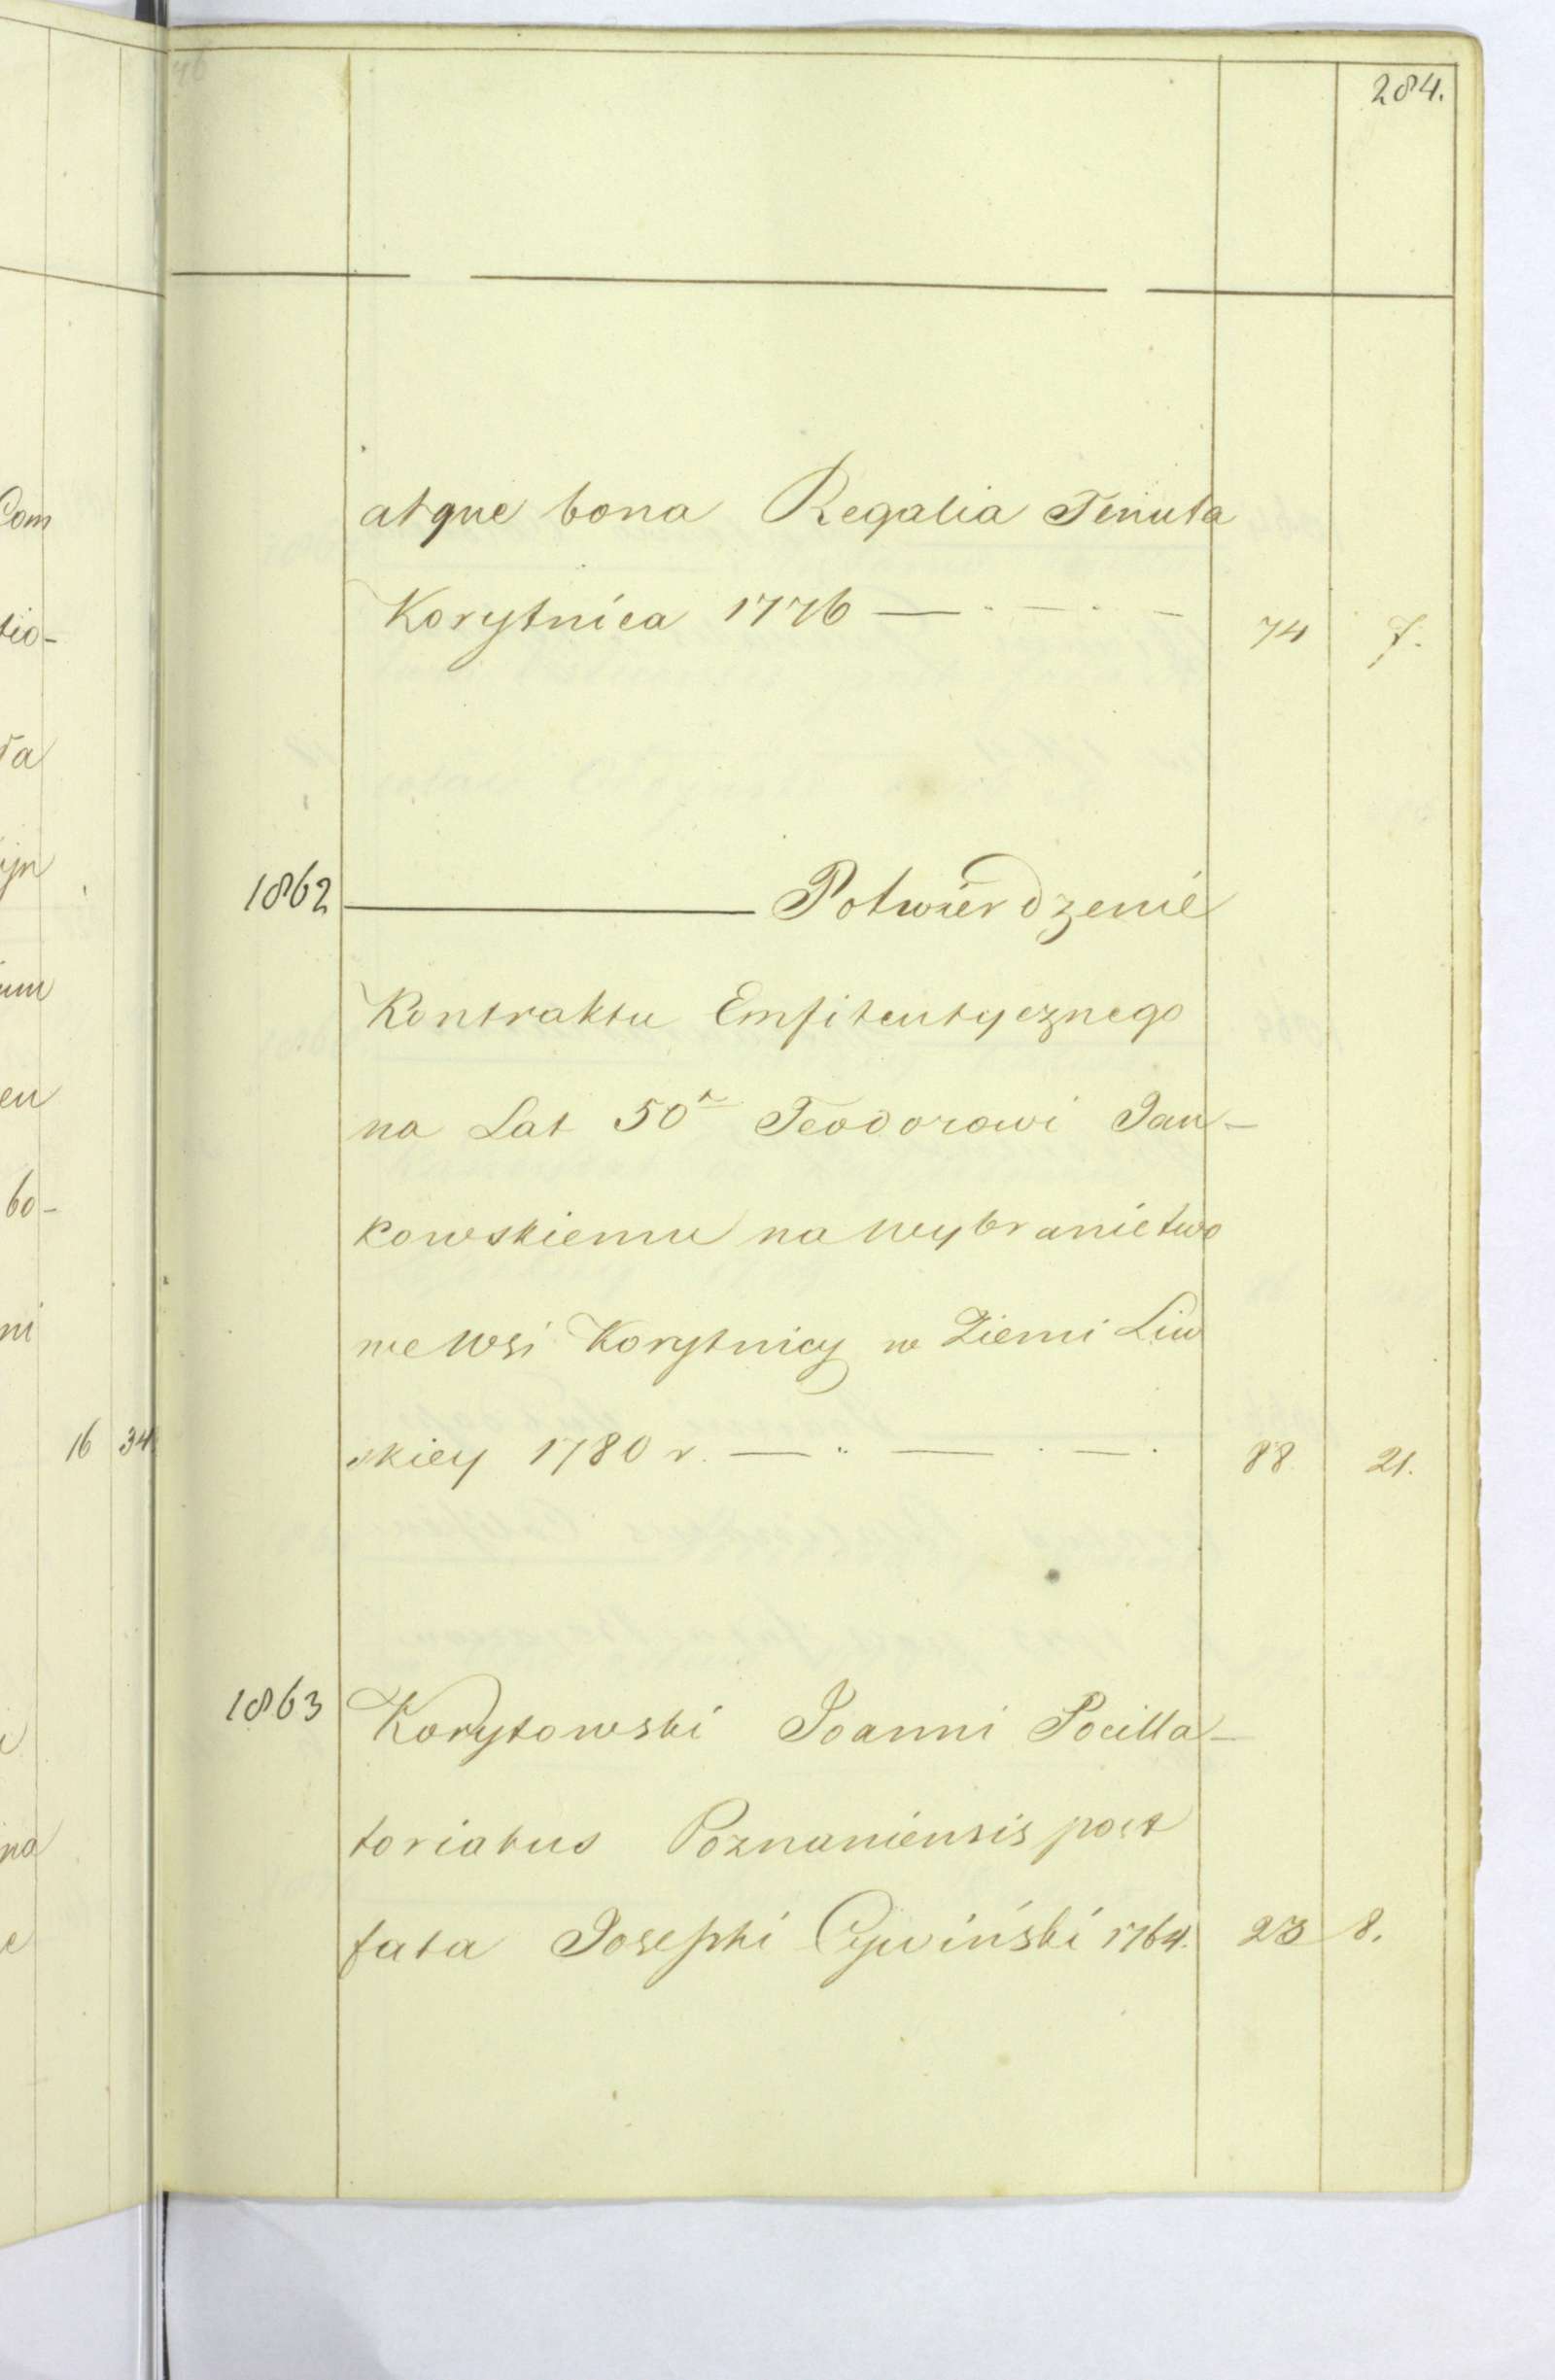 284.
atque bona Regalia Tenuta
Korytnica 1776 — · — · — 74 7.
1862 ——— Potwierdzenie
Kontraktu Emfiteutycznego
na Lat 50 Teodorowi Jan-
kowskiemu na wybraniectwo
we Wsi Korytnicy w Ziemi Liw
skiey 1780 r. — ·· — · — · 88 21.
1863 Korytowski Joanni Pocilla-
toriatus Poznaniensis post
fata Josephi Cywiński 1764. 23 8.
Com
tio-
ta
um
en
bo-
ni
16 34
na
e